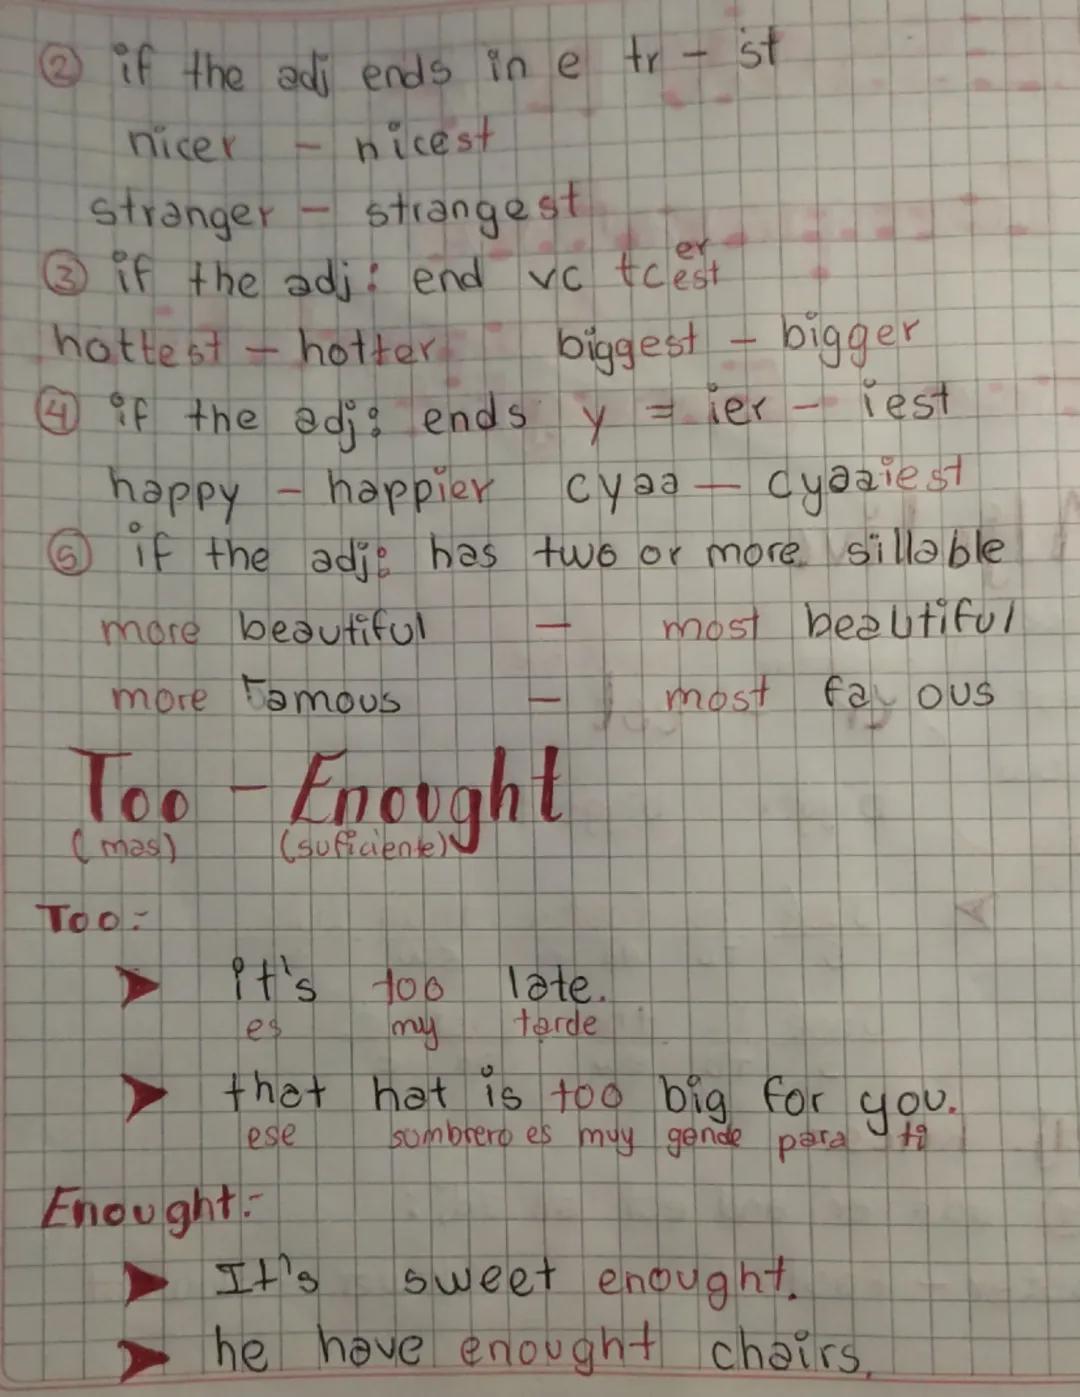 ② if the adj ends in e tr - st
nicer - nicest
stranger - strangest
③ if the adj: end vc tc er est
hottest - hotter biggest - bigger
④ if the adj: ends y = ier - iest
happy - happier cyaa - cyaaiest
⑤ if the adj: has two or more sillable
more beautiful - most beautiful
more famous - most fa ous
Too - Enought
(mas) (suficiente)
Too:-
it's too late.
es my tarde
that hat is too big for you.
ese sombrero es muy gande para ti
Enought:-
It's sweet enought.
he have enought chairs.